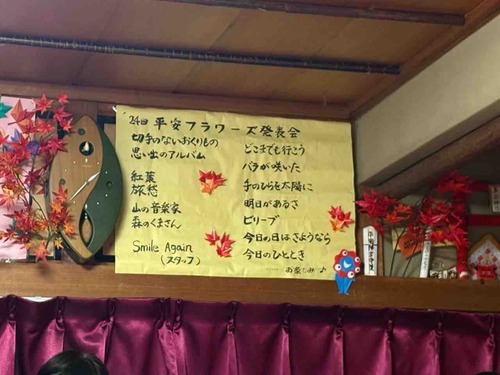 24回 平安フラワーズ発表会
切手のないおくりもの
思い出のアルバム
紅葉
旅愁
山の音楽家
森のくまさん
Smile Again
(スタッフ)
どこまでも行こう
バラが咲いた
手のひらを太陽に
明日があるさ
ビリーブ
今日の日はさようなら
今日のひととき
お楽しみ♪